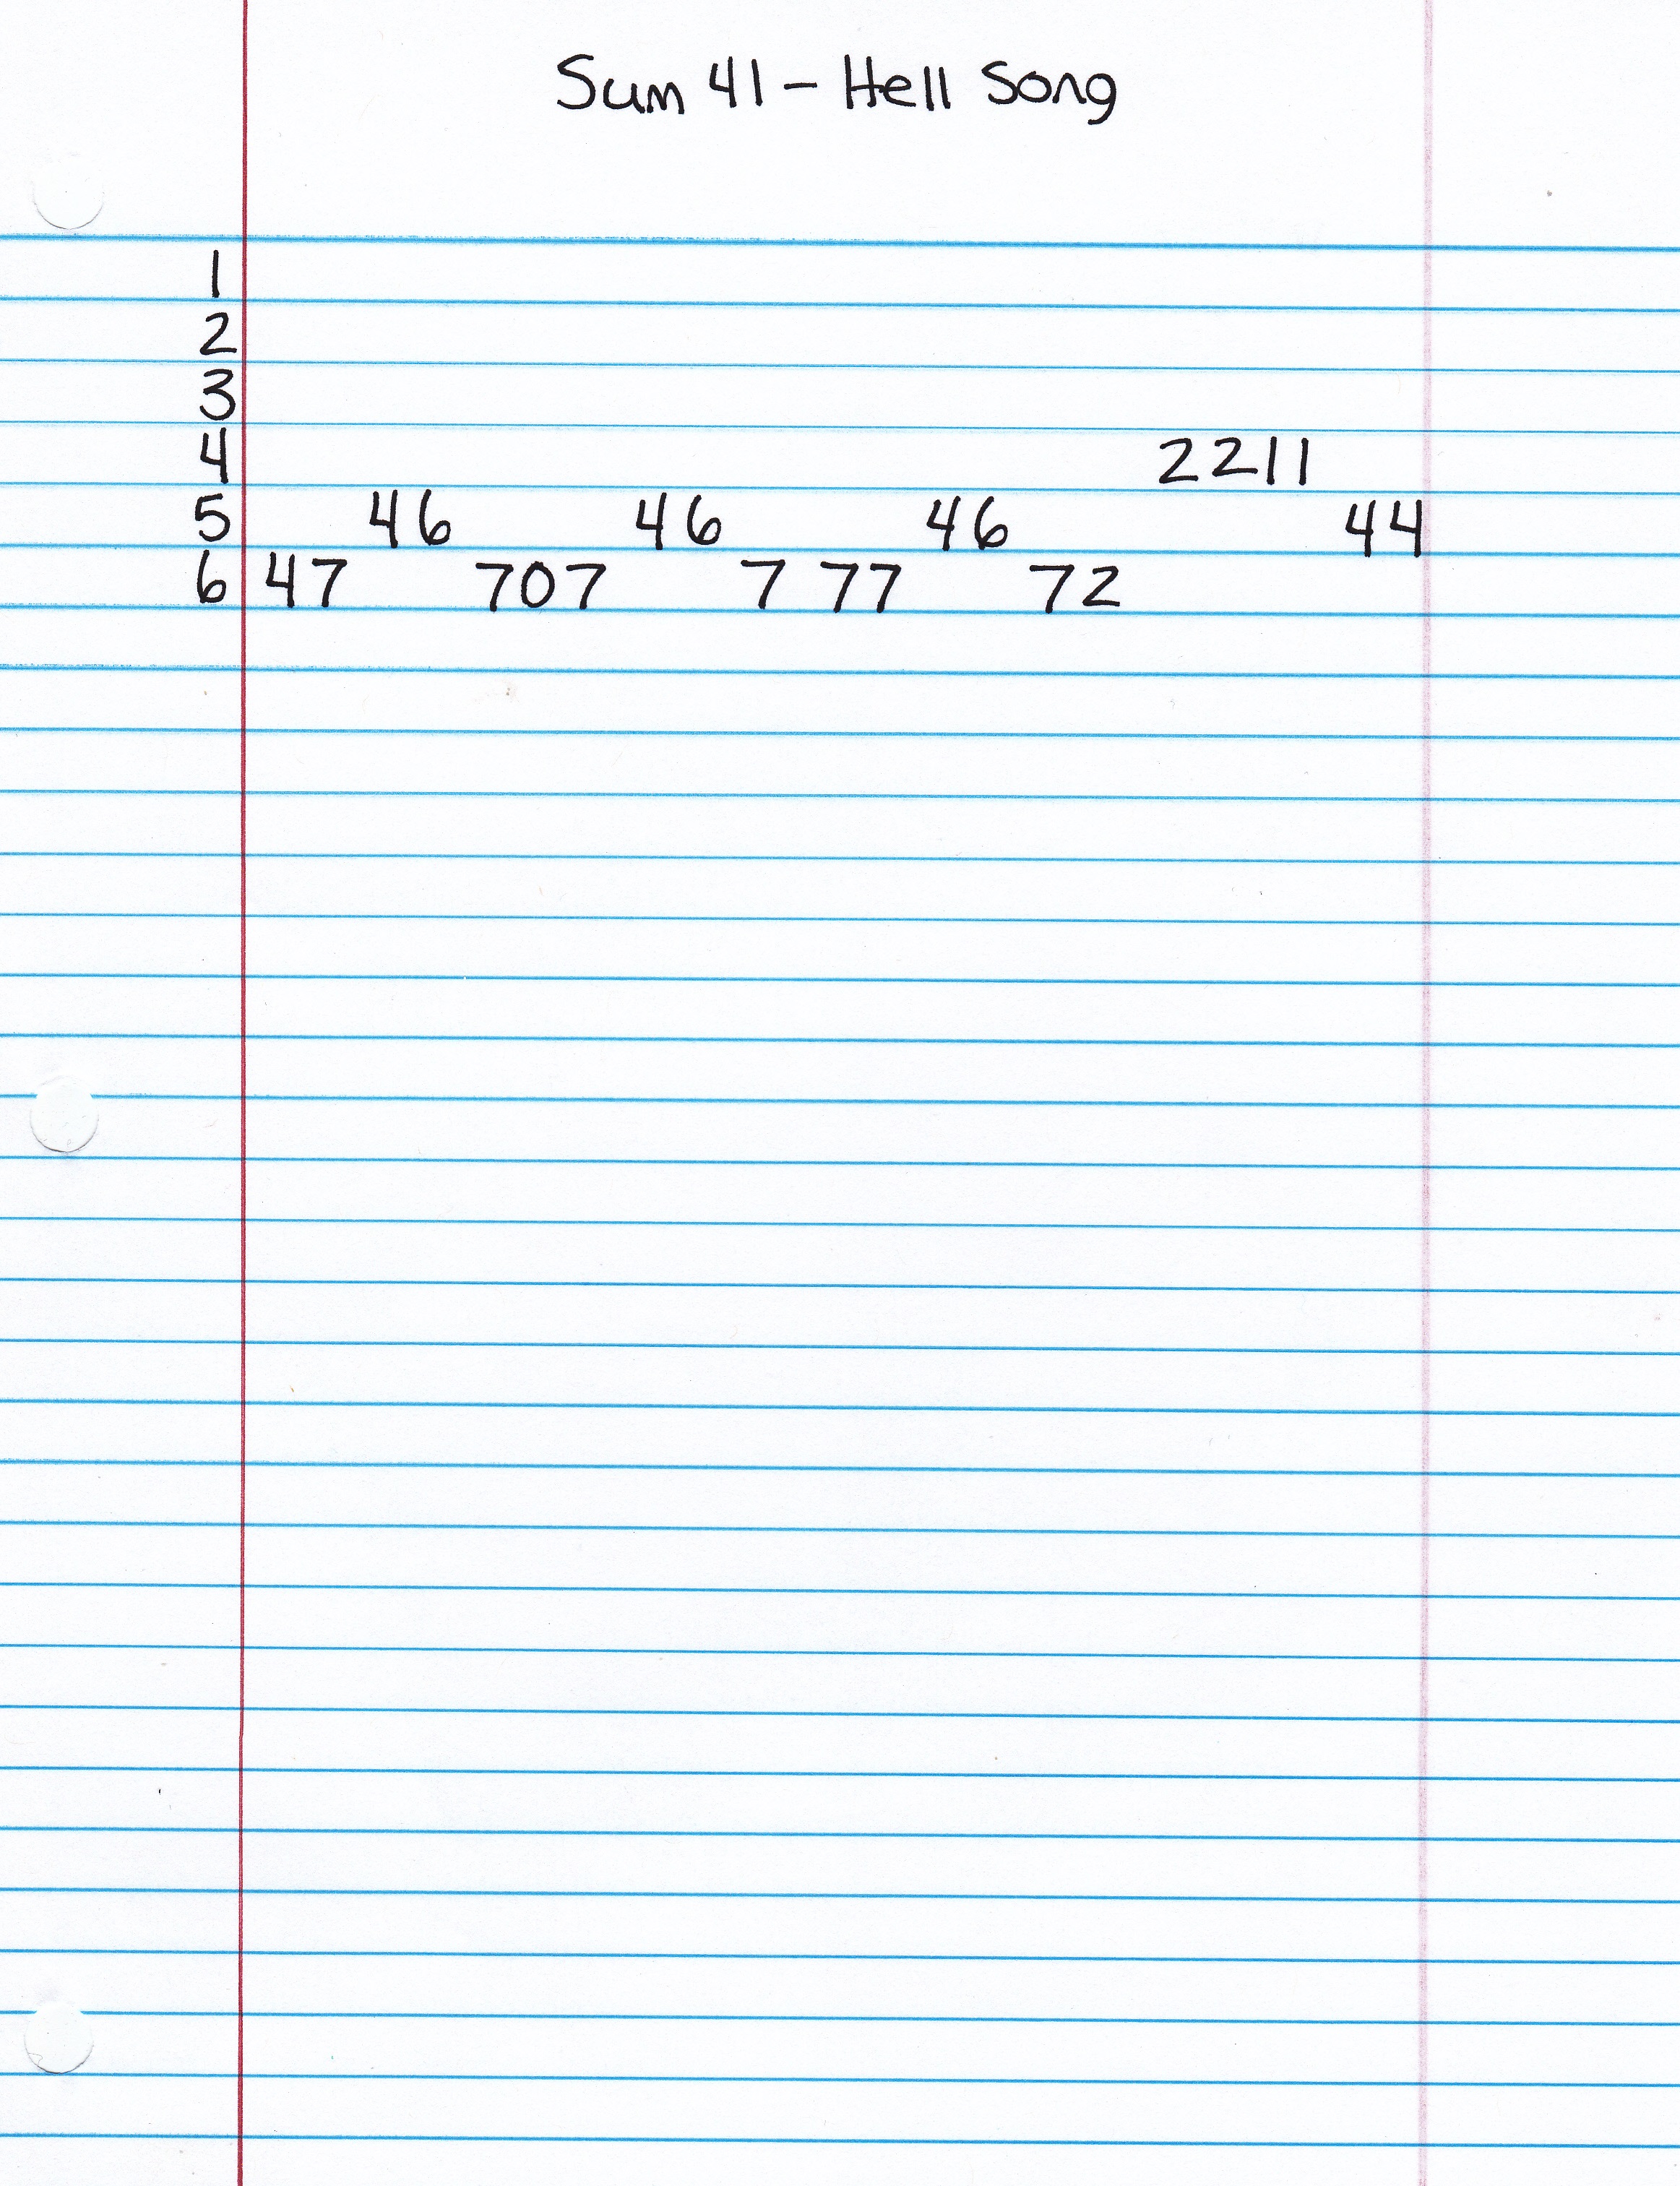 Sum 41 - Hell Song
1
2
3
4 2211
5 46 46 46 44
6 47 707 7 77 72